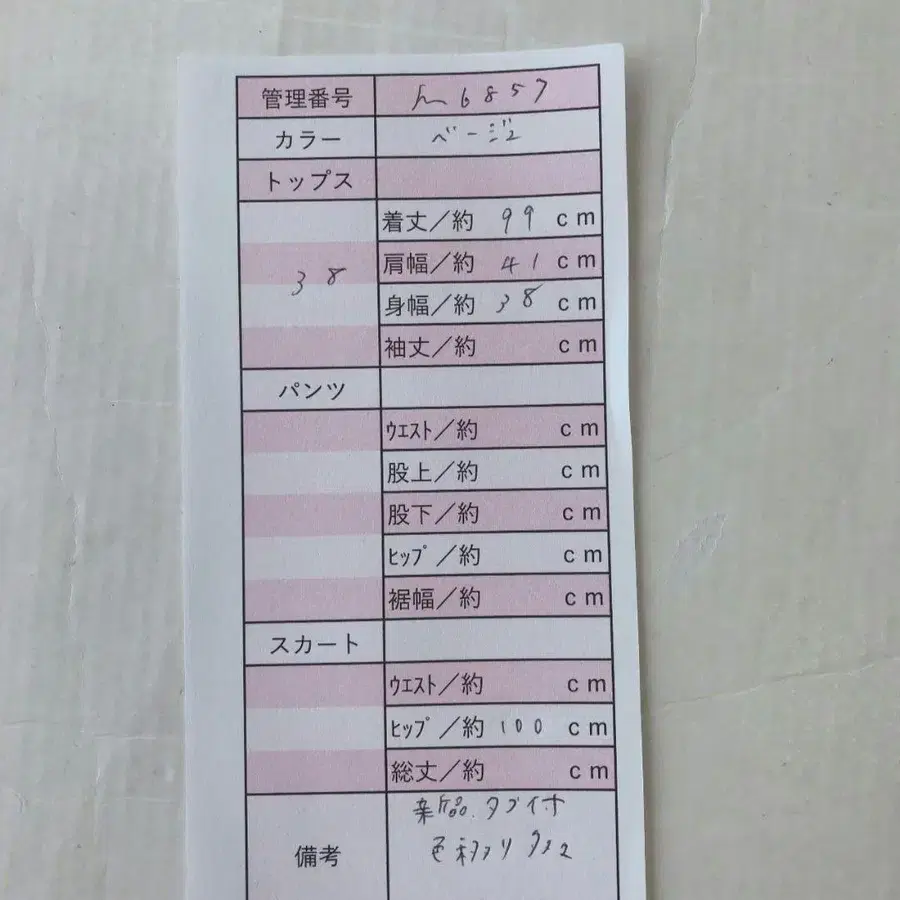 管理番号 6857
カラー ベージュ
トップス
38
着丈／約 99 cm
肩幅／約 41 cm
身幅／約 38 cm
袖丈／約 cm
パンツ
ウエスト／約 cm
股上／約 cm
股下／約 cm
ヒップ／約 cm
裾幅／約 cm
スカート
ウエスト／約 cm
ヒップ／約 100 cm
総丈／約 cm
備考
新品、タグ付